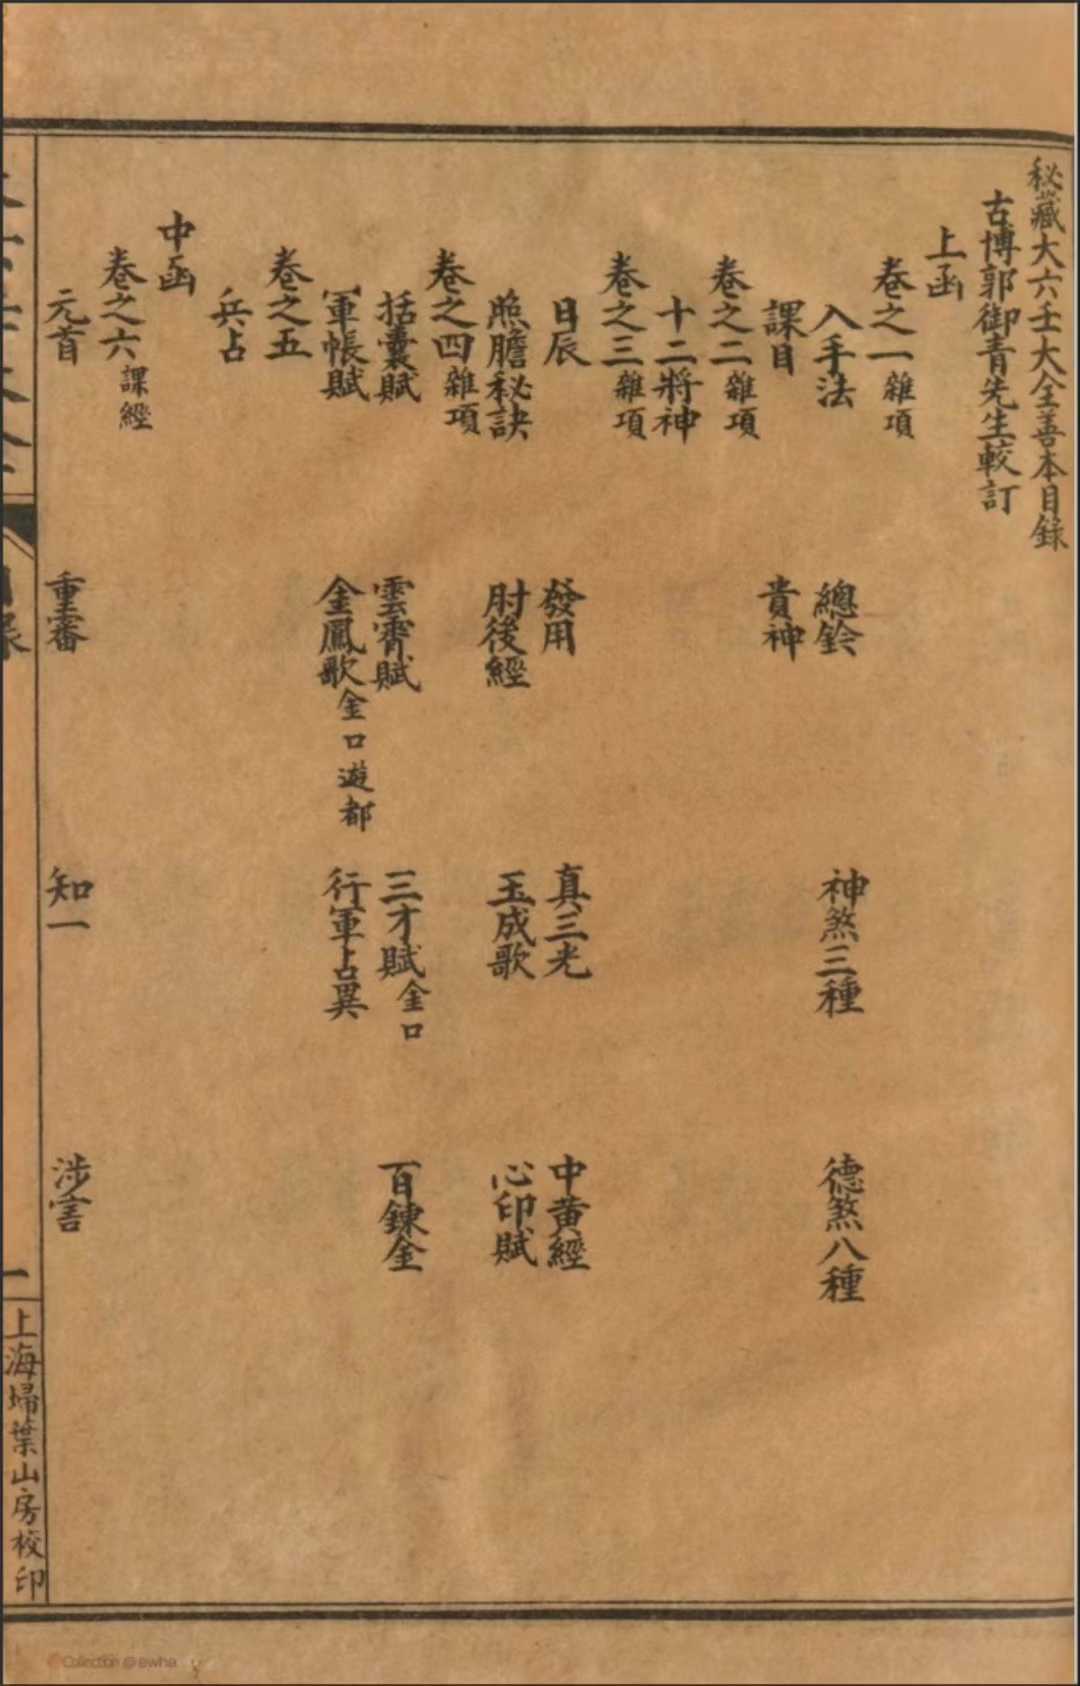 秘藏大六壬大全善本目錄
古博郭御青先生較訂
上函
卷之一 雜項
入手法 總鈐 神煞三種 德煞八種
課目 貴神
卷之二 雜項
十二將神
卷之三 雜項
日辰 發用 真三光 中黃經
照膽秘訣 肘後經 玉成歌 心印賦
卷之四 雜項
括囊賦 雲霄賦 三才賦 金口 百鍊金
軍帳賦 金鳳歌 金口遊都 行軍占異
卷之五
兵占
中函
卷之六 課經
元首 重審 知一 涉害
目錄
一
上海埽葉山房校印
Collection @ewha